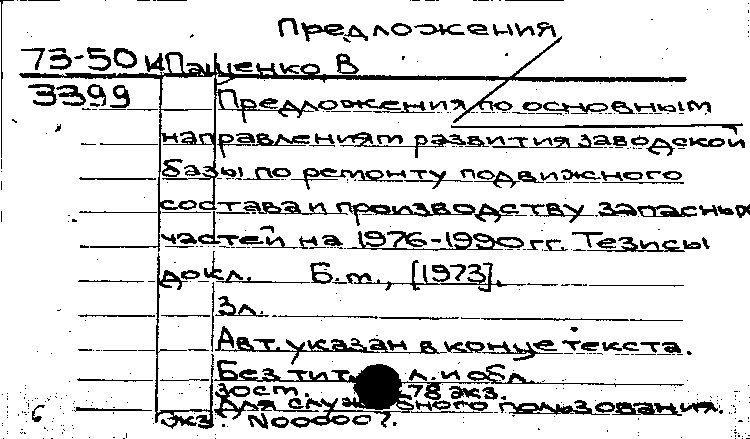 Предложения
73-50к Пащенко, В
3399
Предложения по основным
направлениям развития заводской
базы по ремонту подвижного
состава и производству запасных
частей на 1976-1990 гг. Тезисы
докл. Б.м., [1973].
3л.
Авт. указан в конце текста.
Без тит. л. и обл.
30ст. 78 экз.
Для служебного пользования.
6 экз. N000007.